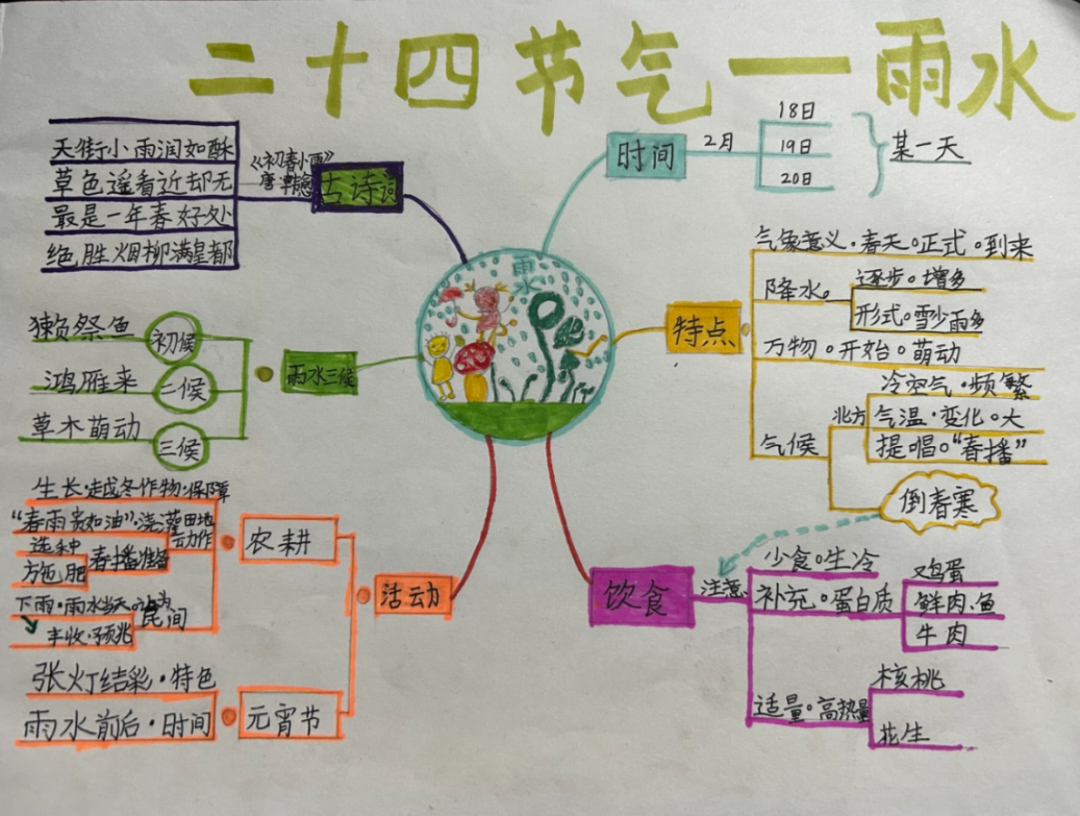 二十四节气——雨水
雨水
时间
2月
18日
19日
20日
某一天
特点
气象意义·春天·正式·到来
降水
逐步·增多
形式·雪少雨多
万物·开始·萌动
气候
北方
冷空气·频繁
气温·变化·大
提唱·“春播”
倒春寒
饮食
注意
少食·生冷
补充·蛋白质
鸡蛋
鲜肉·鱼
牛肉
适量·高热量
核桃
花生
活动
农耕
生长·越冬作物·保障
“春雨贵如油”·浇灌田地
春播准备
选种
施肥
民间
下雨·雨水当天
丰收·预兆
元宵节
张灯结彩·特色
雨水前后·时间
雨水三候
初候
獭祭鱼
二候
鸿雁来
三候
草木萌动
古诗词
《初春小雨》
唐·韩愈
天街小雨润如酥
草色遥看近却无
最是一年春好处
绝胜烟柳满皇都